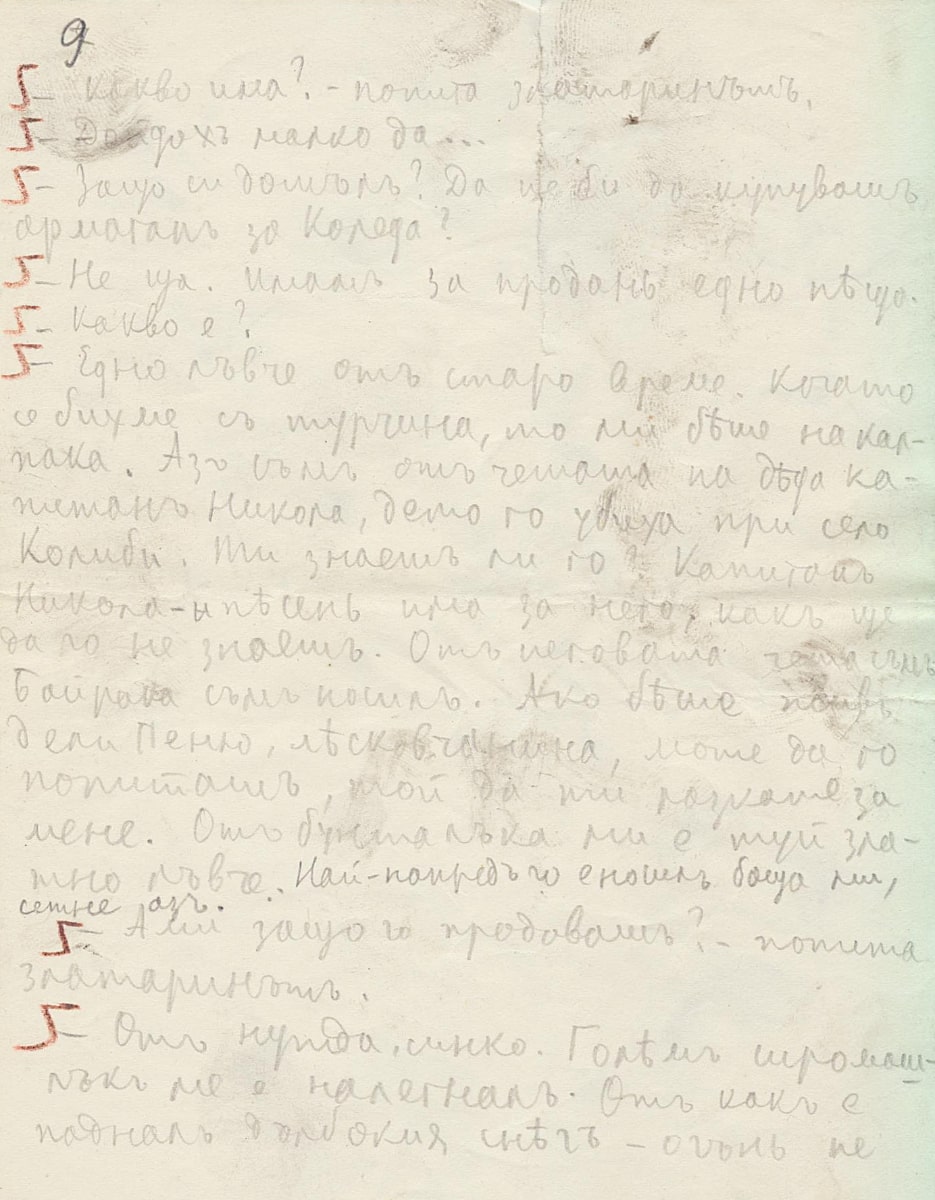 9
– Какво има? – попита златаринътъ.
– Дойдохъ малко да...
– Защо си дошълъ? Да не би да купувашъ
армаганъ за Коледа?
– Не ща. Имамъ за проданъ едно нѣщо.
– Какво е?
– Едно лъвче отъ старо време. Когато
се бихме съ турчина, то ми бѣше на кал-
пака. Азъ съмъ отъ четата на дѣда ка-
питанъ Никола, дето го убиха при село
Колиби. Ти знаешъ ли го? Капитанъ
Никола – и пѣсень има за него, какъ ще
да го не знаешъ. Отъ неговата чета съмъ
Байряка съмъ носилъ. Ако бѣше живъ
дели Пеню, лѣсковчанина, може да го
попиташъ, той да ти разкаже за
мене. Отъ бунталъка ми е туй зла-
тно лъвче. Най-попредъ го е носилъ баща ми,
сетне азъ.
– Ами защо го продавашъ? – попита
златаринътъ.
– Отъ нужда, синко. Голѣмъ сиромаш-
лъкъ ме е налегналъ. Отъ какъ е
падналъ дълбокия снѣгъ – огънь не